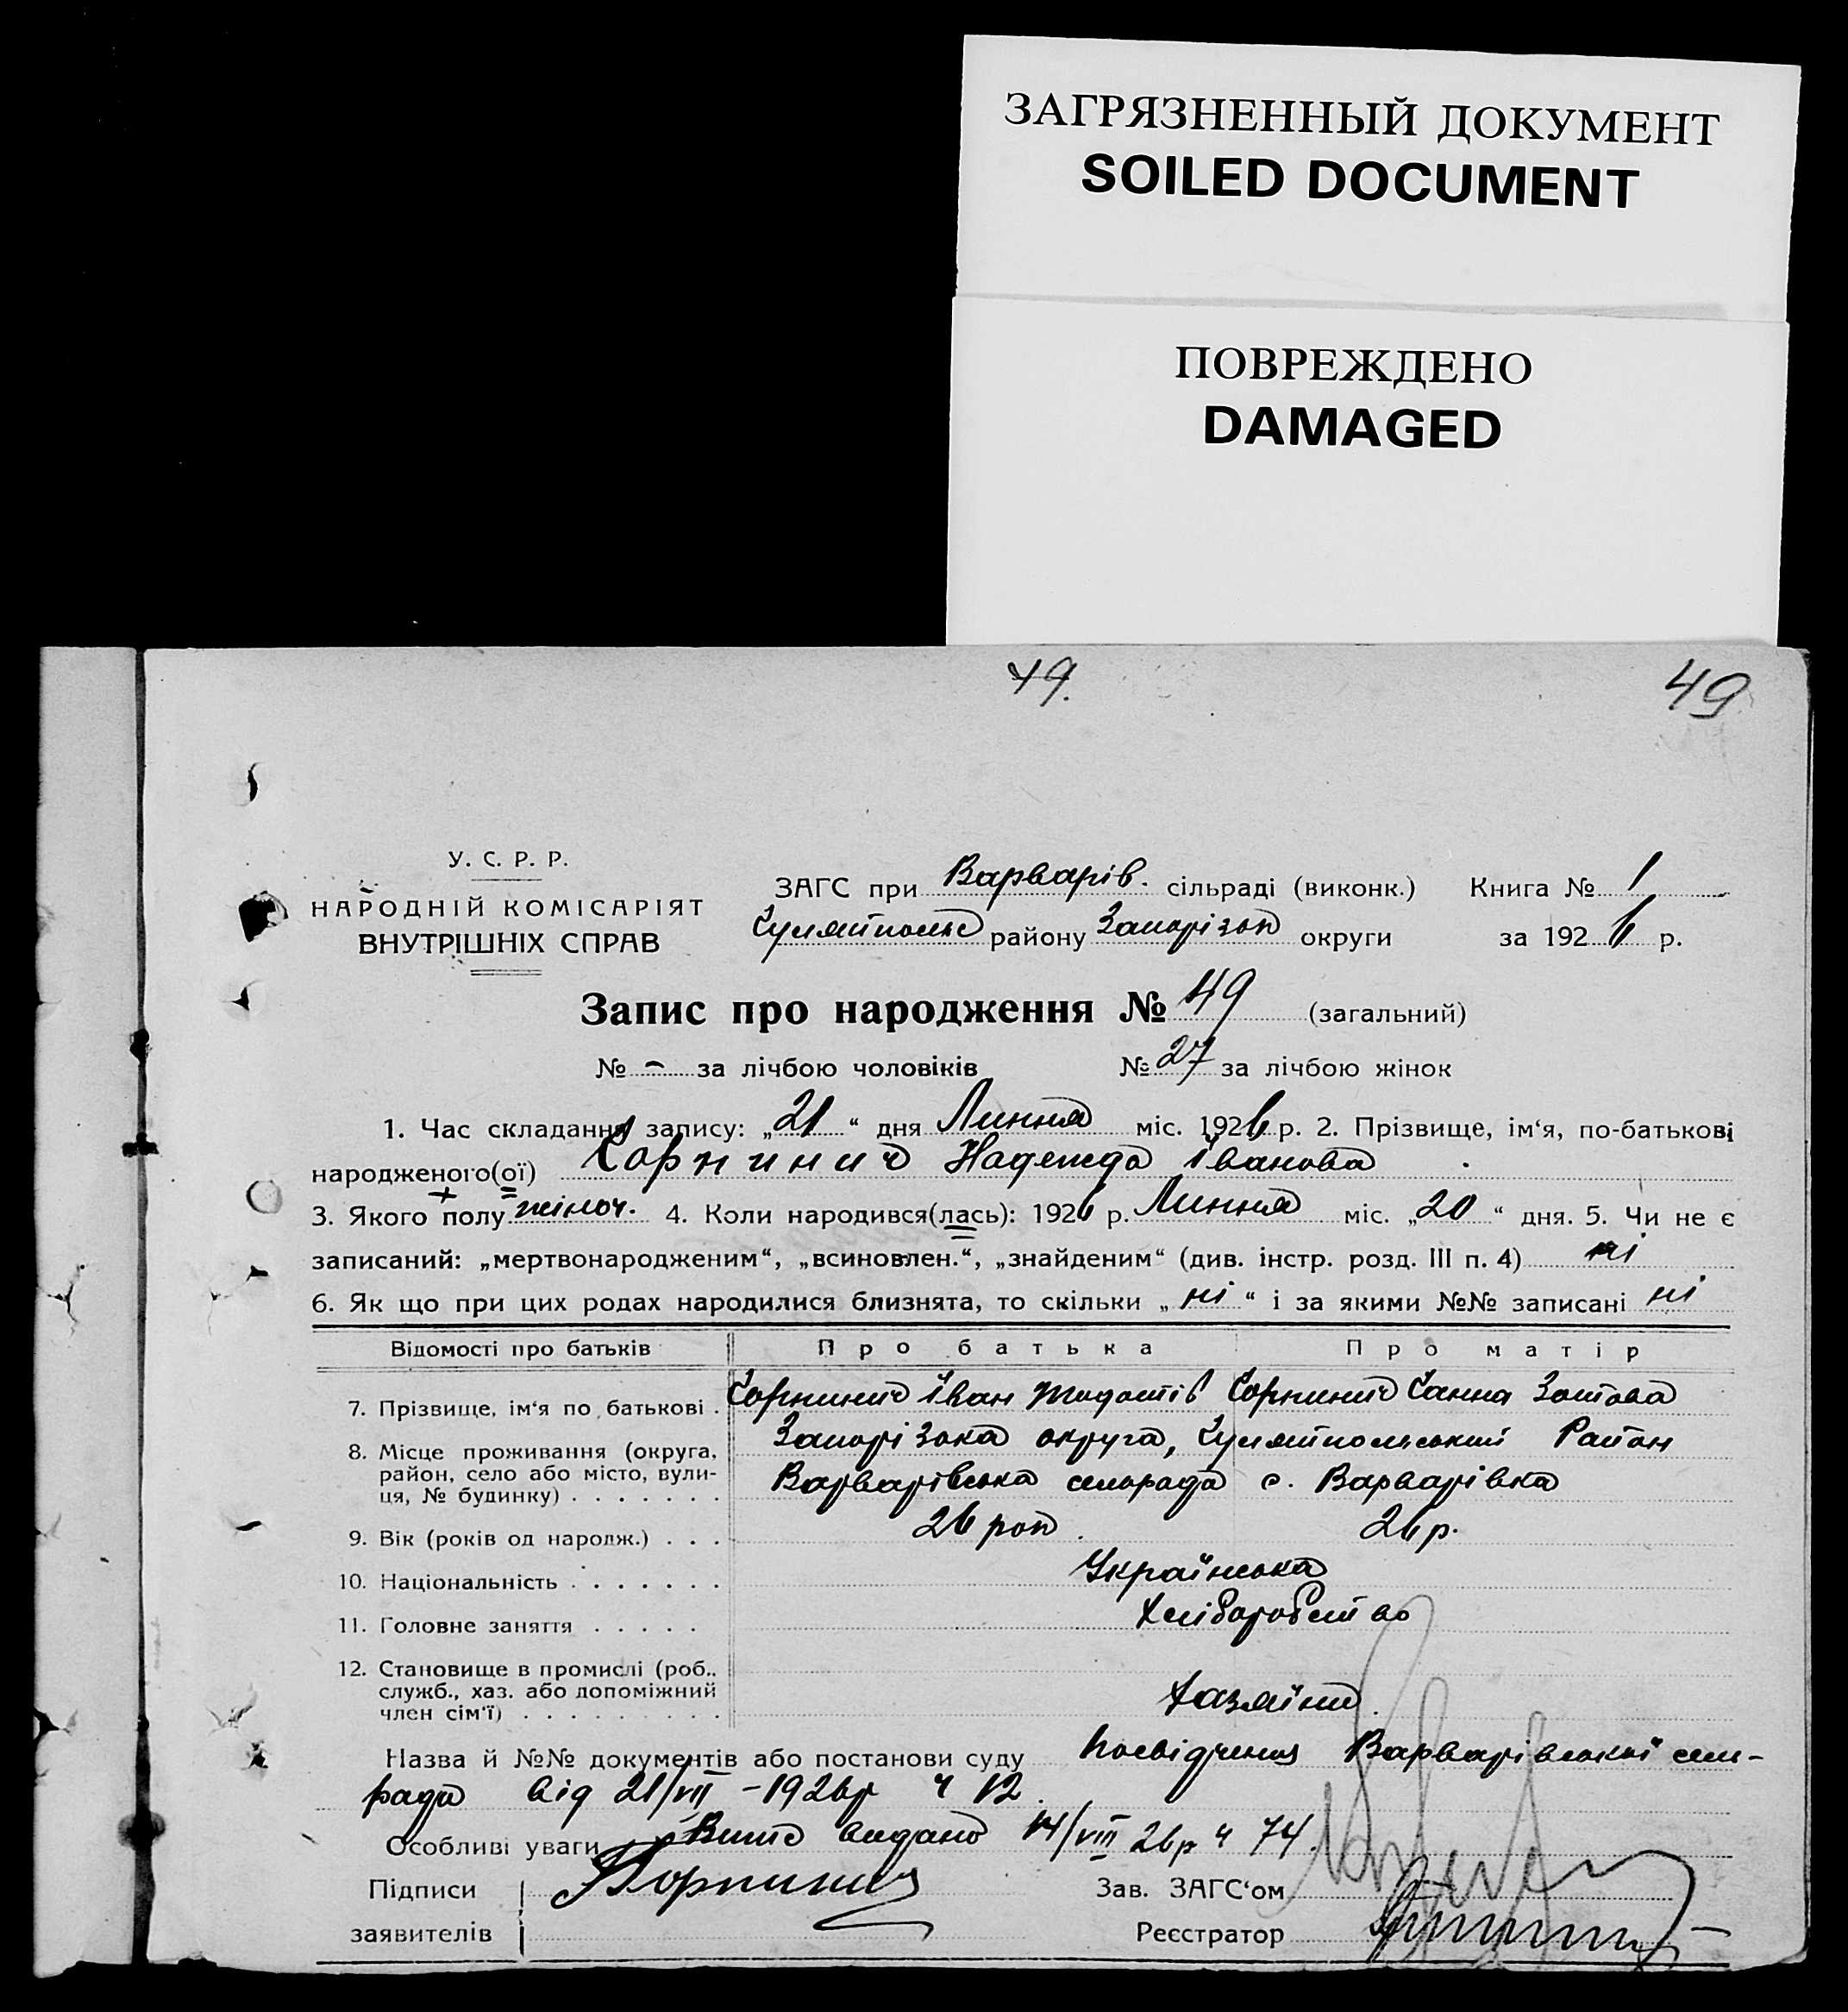 ЗАГРЯЗНЕННЫЙ ДОКУМЕНТ
SOILED DOCUMENT
ПОВРЕЖДЕНО
DAMAGED
49. 49
У. С. Р. Р.
НАРОДНІЙ КОМІСАРІЯТ
ВНУТРІШНІХ СПРАВ
ЗАГС при Варварів. сільраді (виконк.) Книга № 1
району округи за 1926 р.
Запис про народження № 49 (загальний)
№ – за лічбою чоловіків № 27 за лічбою жінок
1. Час складання запису: „21“ дня Липня міс. 1926 р. 2. Прізвище, ім‘я, по-батькові
народженого(ої) Надежда Іванова
3. Якого полу жіноч. 4. Коли народився(лась): 1926 р. Липня міс. „20“ дня. 5. Чи не є
записаний: „мертвонародженим“, „всиновлен.“, „знайденим“ (див. інстр. розд. III п. 4) ні
6. Як що при цих родах народилися близнята, то скільки „ні“ і за якими №№ записані ні
Відомості про батьків Про батька Про матір
7. Прізвище, ім‘я по батькові . Іван Ганна
8. Місце проживання (округа, Запорізька округа, Гуляйпольський Район
район, село або місто, вули-
ця, № будинку) . . . . . . . Варварівська сельрада с. Варварівка
9. Вік (років од народж.) . . . 26 рок 26 р.
10. Національність . . . . . . . Українська
11. Головне заняття . . . . . Хліборобство
12. Становище в промислі (роб.,
служб., хаз. або допоміжний
член сім‘ї) . . . . . . . . . Хазяїни
Назва й №№ документів або постанови суду Посвідчення Варварівської сель-
ради від 21/VII – 1926р ч 12.
Особливі уваги видано 14/VIII 26р ч 74.
Підписи Зав. ЗАГС‘ом
заявителів Реєстратор